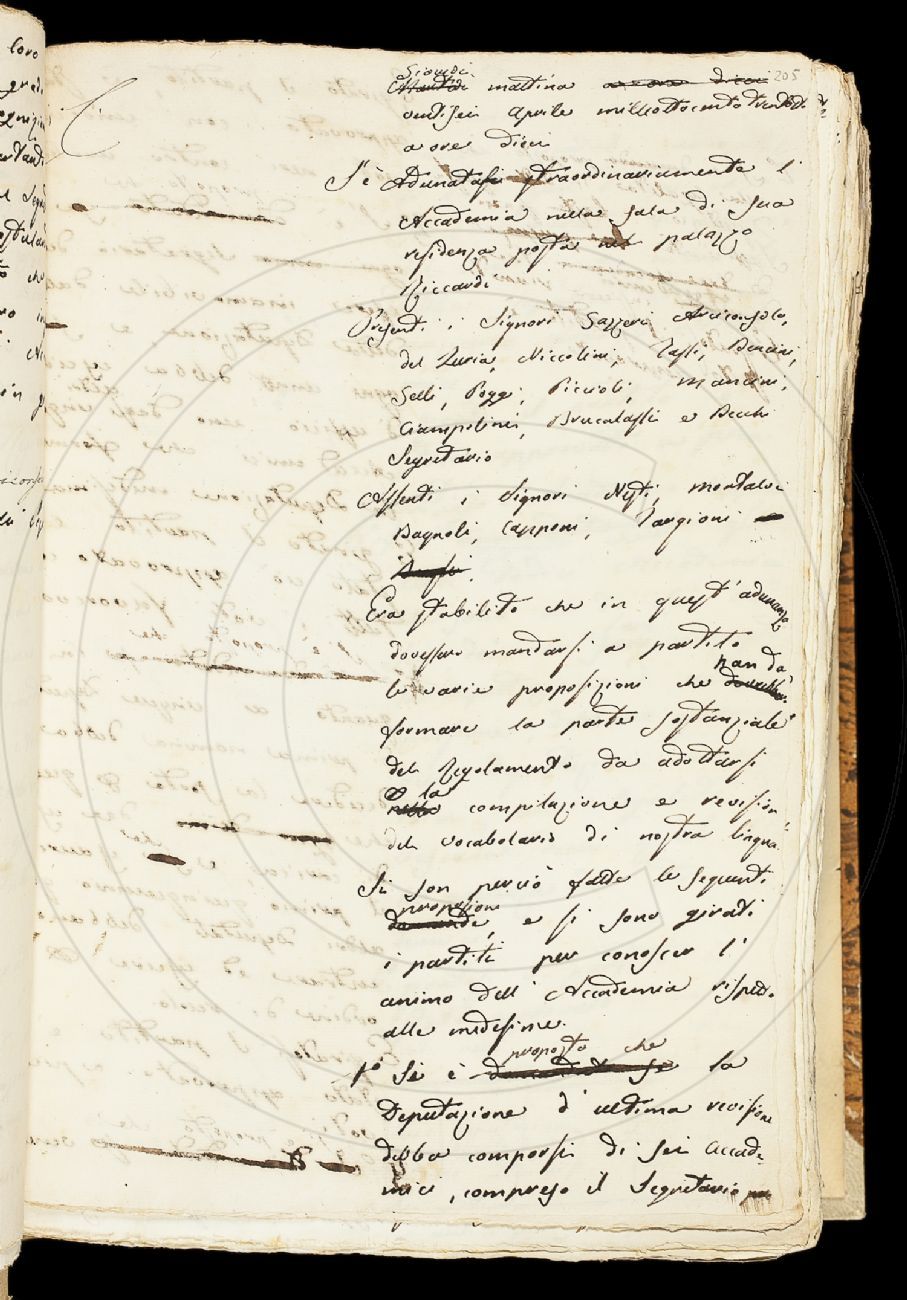 205
Giovedì
Martedì mattina a ore dieci
ventisei aprile milleottocentotrentadue
a ore dieci
S'è adunata straordinariamente l'
Accademia nella sala di sua
residenza posta nel palazzo
Riccardi
Presenti i Signori Gazzeri Arciconsolo,
del Furia, Niccolini, Tassi, Bencini,
Selli, Poggi, Piccioli, Mancini,
Ciampolini, Brucalassi e Becchi
Segretario
Assenti i Signori Nesti, Montalvi
Bagnoli, Capponi, Targioni
Era stabilito che in quest'adunanza
dovessero mandarsi a partito
han da
le varie proposizioni che dovrebber
formare la parte sostanziale
del Regolamento da adottarsi
la
nella compilazione e revision
del vocabolario di nostra lingua.
Si son perciò fatte le seguenti
proposizioni
domande, e si sono girati
i partiti per conoscer l'
animo dell' Accademia rispetto
alle medesime.
proposto che
1° Si è domandato se la
Deputazione d'ultima revisione
debba comporsi di sei accade-
mici, compreso il Segretario